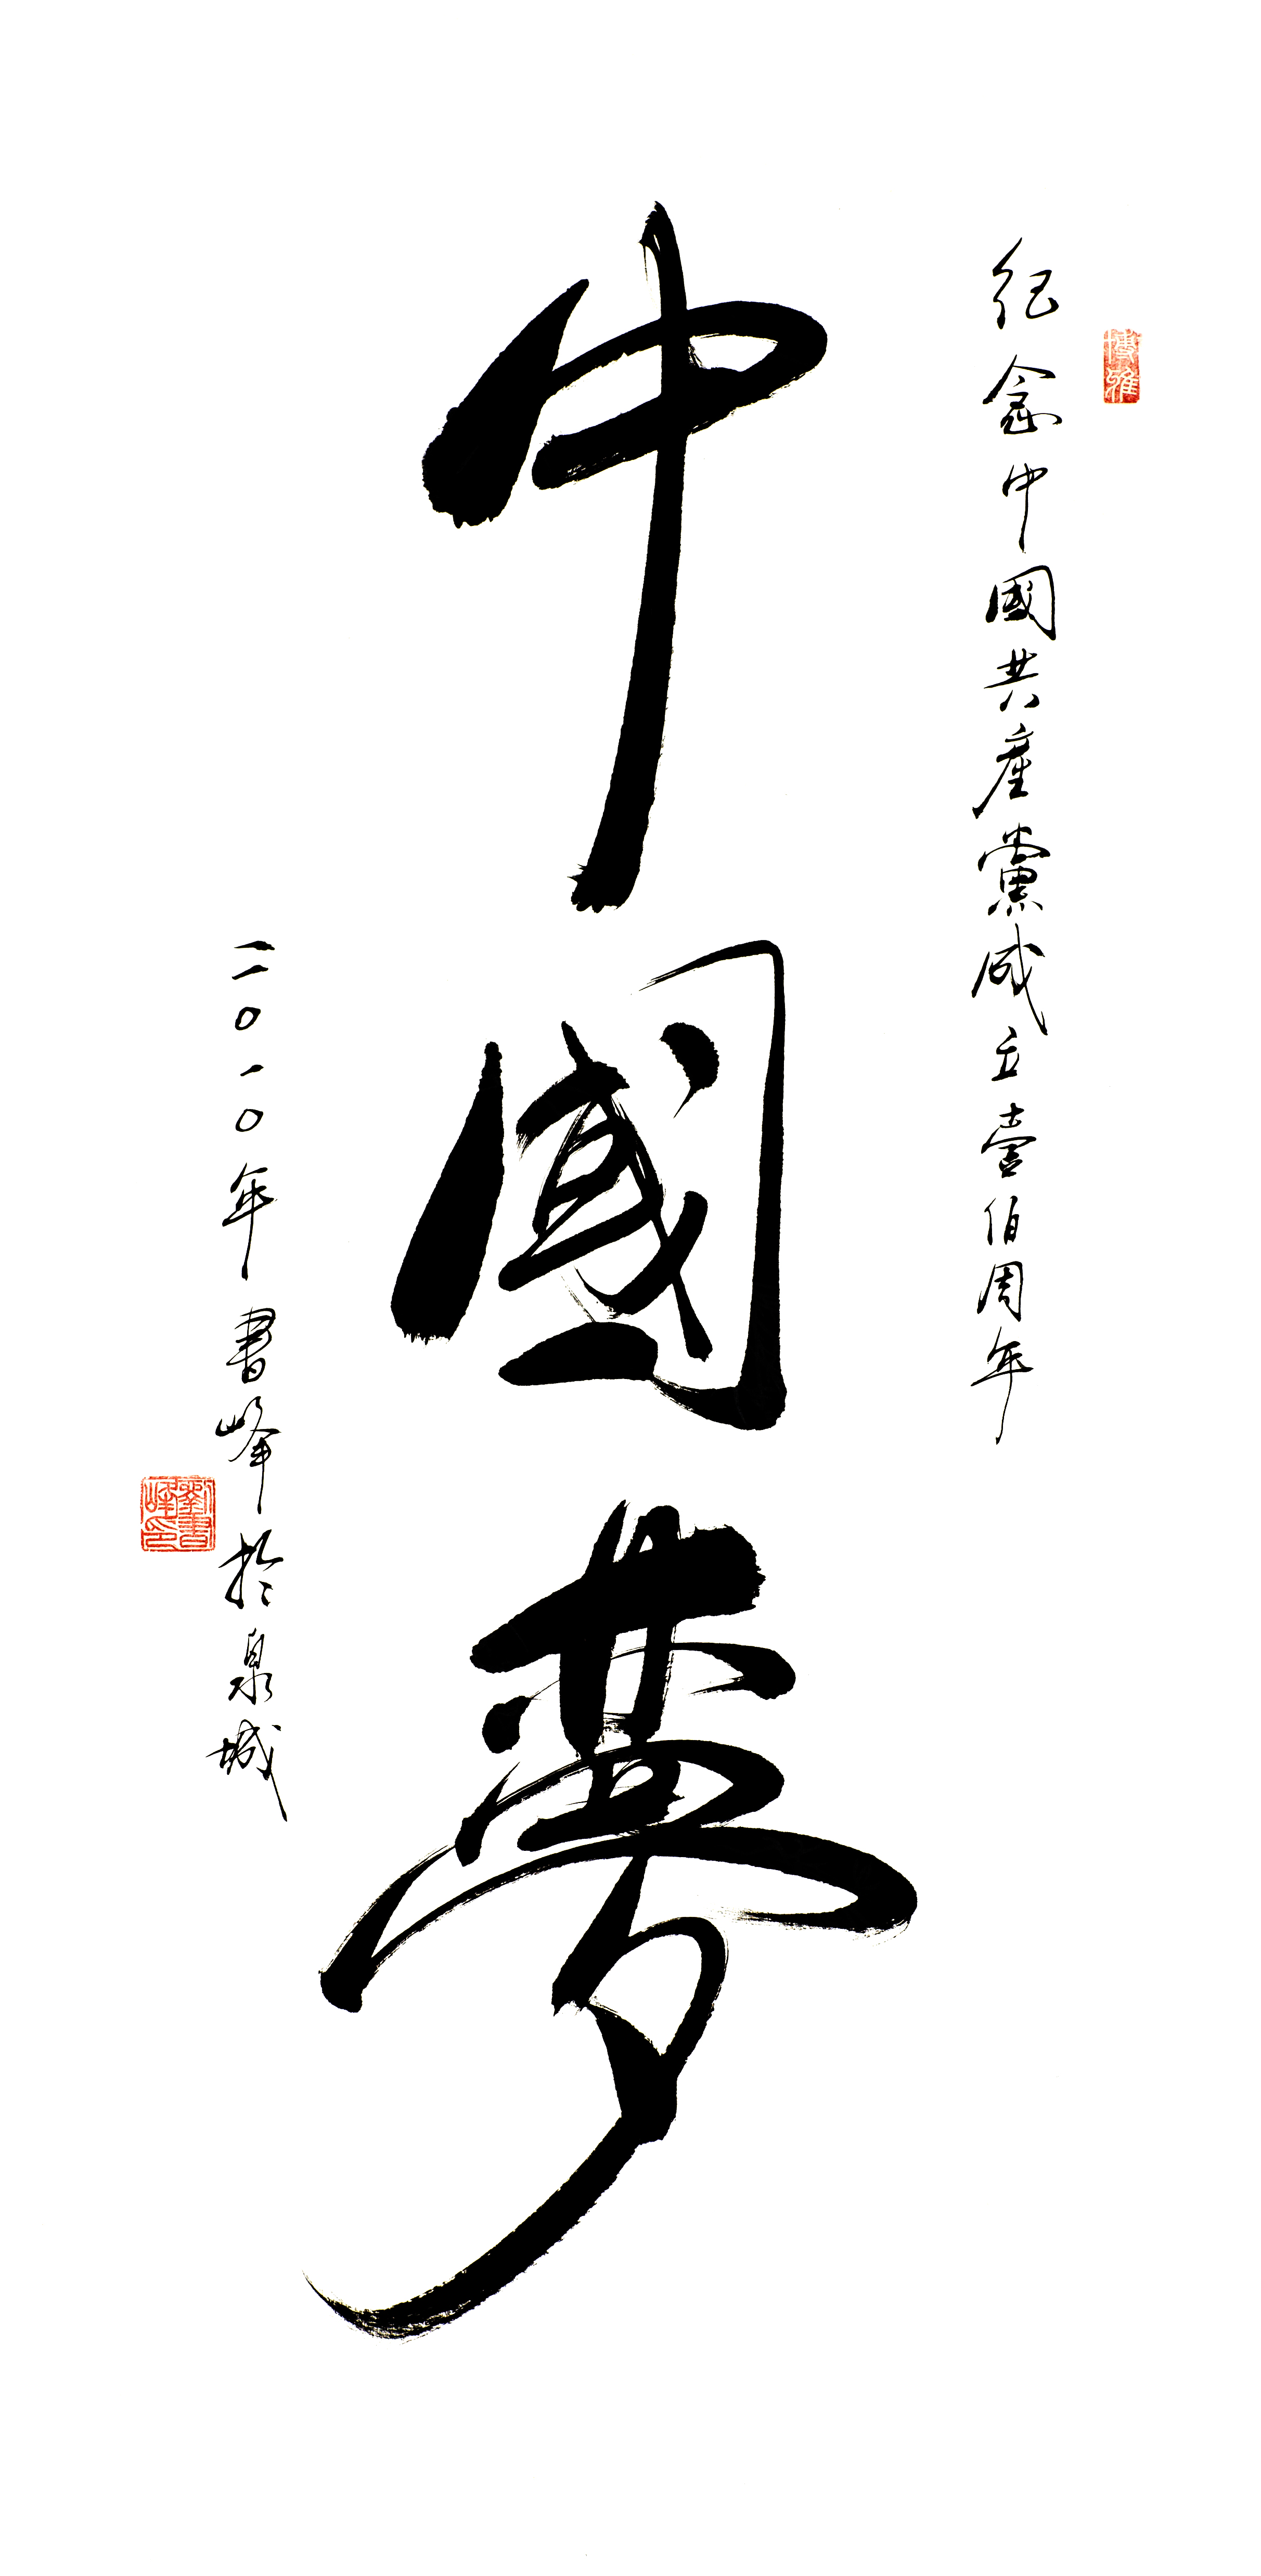 博雅
紀念中國共產黨成立壹佰周年
中國夢
二〇一〇年書峰於泉城
劉書峰印